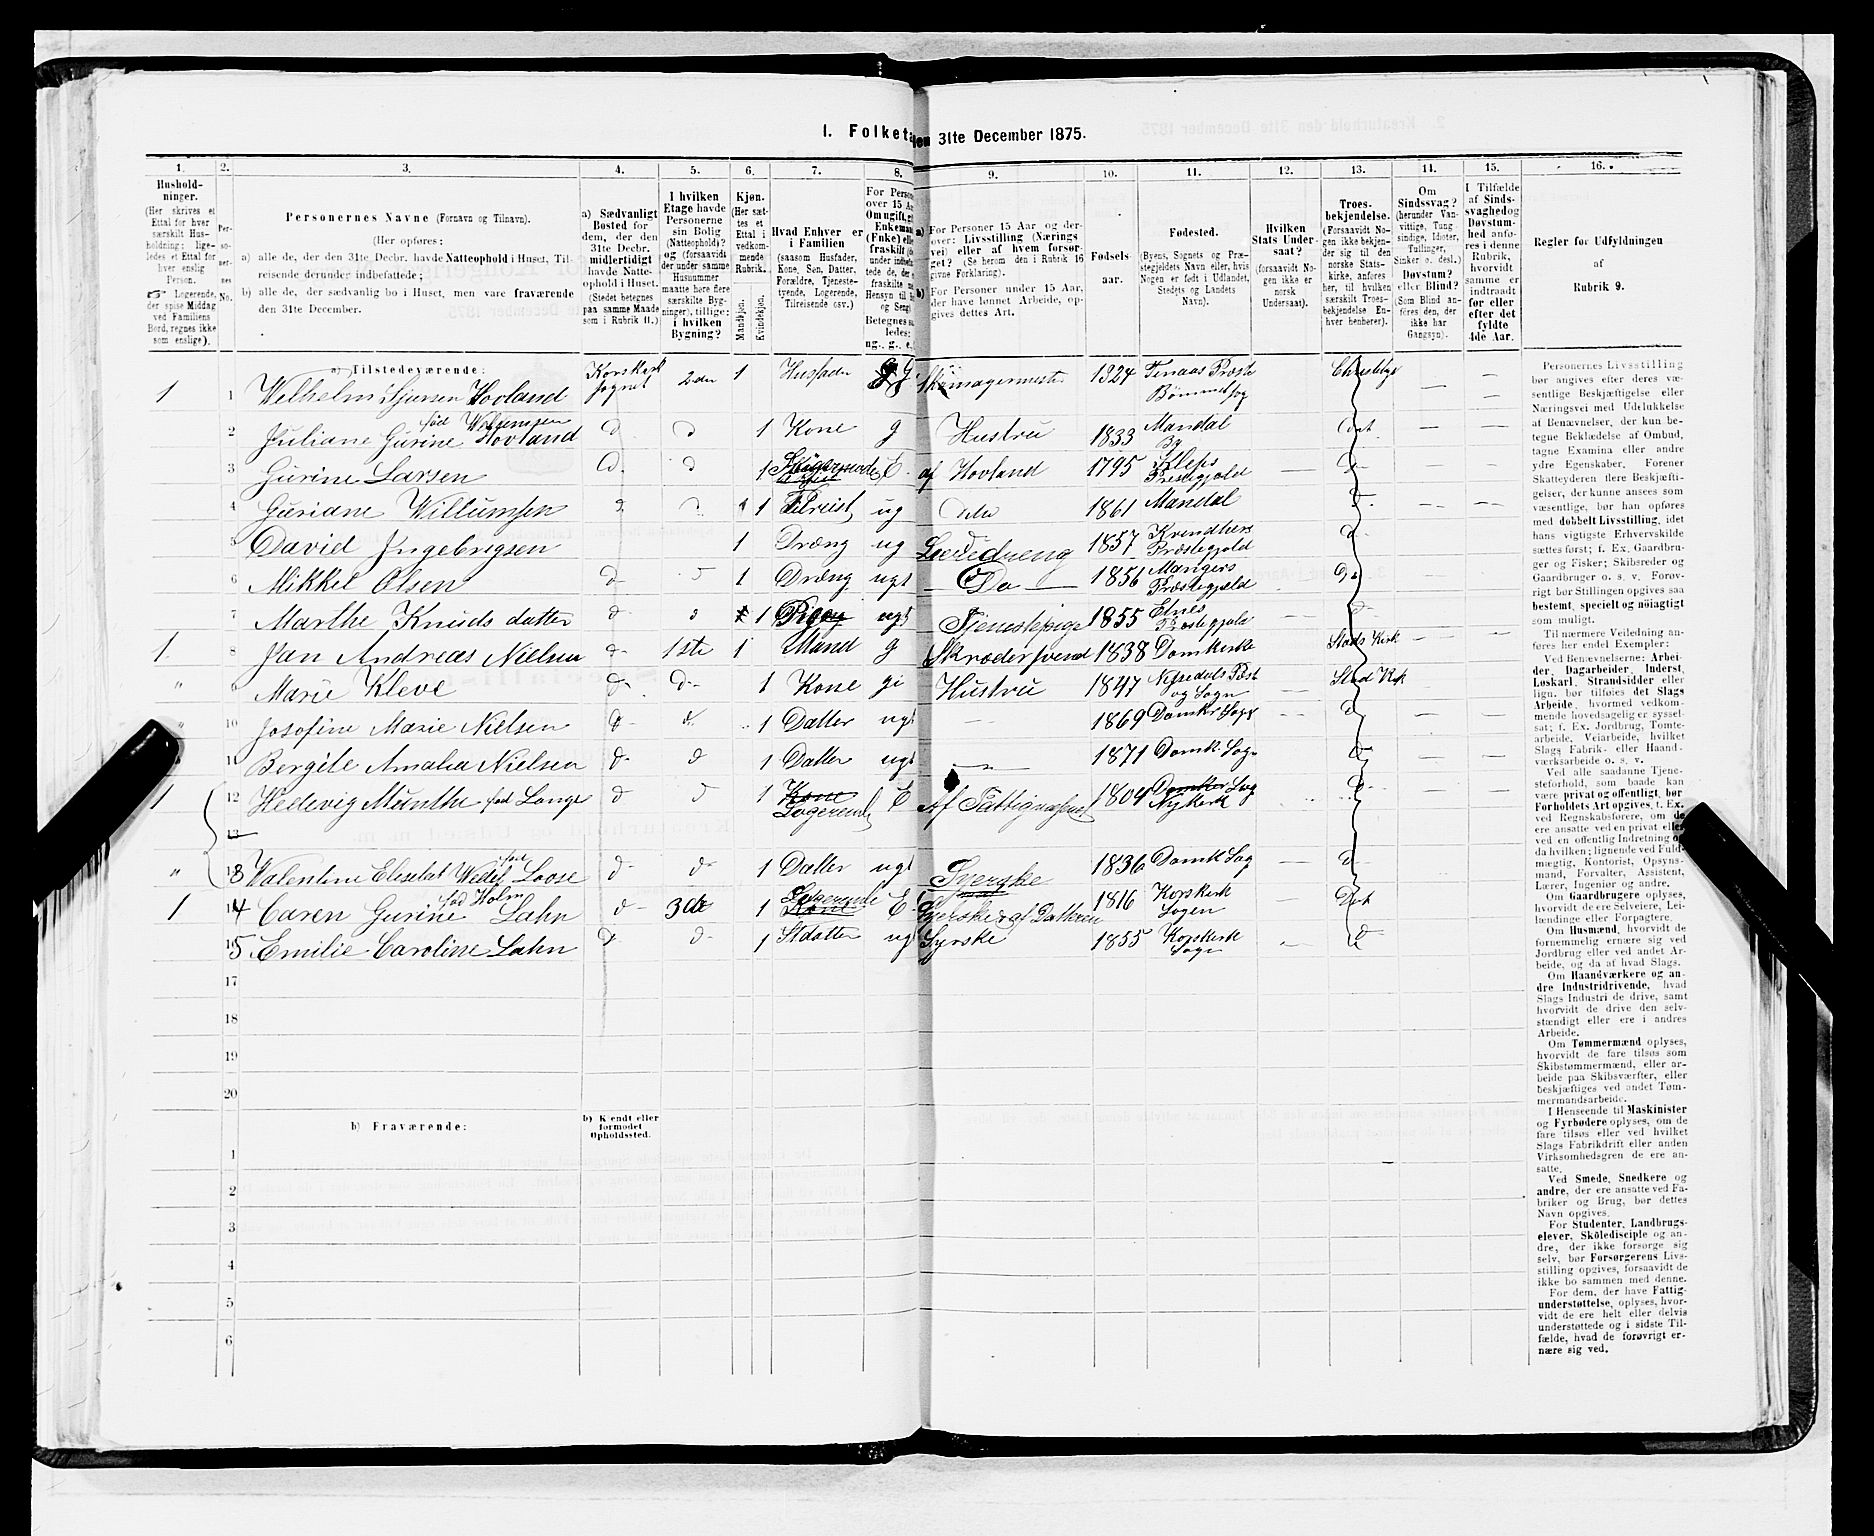 1. Folket
den 31te December 1875.
1.
2.
3.
4.
5.
6.
7.
8.
9.
10.
11.
12.
13.
14.
15.
16.
Hushold-
ninger.
(Her skrives et
Ettal for hver
særskilt Hus-
holdning; lige-
ledes et Ettal for
hver enslig
Person.
Logerende,
der spise Middag
ved Familiens
Bord, regnes ikke
som enslige).
Per-
so-
ner-
nes
No.
Personernes Navne (Fornavn og Tilnavn).
(Her opføres:
a) alle de, der den 31te Decbr. havde Natteophold i Huset, Til-
reisende derunder indbefattede;
b) alle de, der sædvanlig bo i Huset, men vare fraværende
den 31te December.
a) Sædvanligt
Bosted for
dem, der den
31te Decbr.
midlertidigt
havde Natte-
ophold i Huset.
(Stedet betegnes
paa samme Maade
som i Rubrik 11.)
I hvilken
Etage havde
Personerne
sin Bolig
(Natteophold)?
og (forsaavidt
der under samme
Husnummer
maatte høre flere
særskilte Byg-
ninger), tillige:
i hvilken
Bygning?
Kjøn.
(Her sæt-
tes et
Ettal i
vedkom-
mende
Rubrik.)
Mandkjøn.
Kvindekjøn.
Hvad Enhver er
i Familien
(saasom Husfader,
Kone, Søn, Datter,
Forældre, Tjeneste-
tyende, Logerende,
Tilreisende osv.)
For Person
over 15 Aa
Om ugift, gi
Enkeman
(Enke) elle
fraskilt (de
under indbefat-
tede de, der e
fraskilte
Hensyn til B
og Seng)
Betegnes saa
ledes:
ug., g., e.
a) For Personer 15 Aar og der-
over: Livsstilling (Nærings
vei) eller af hvem forsør-
get? (Se herom den i Rubrik 16
givne Forklaring).
b) For Personer under 15 Aar,
der have lønnet Arbeide, op-
gives dettes Art.
Fødsels-
aar.
Fødested.
(Byens, Sognets og Præ-
stegjeldets Navn eller, hvis
Nogen er født i Udlandet,
Stedets og Landets
Navn).
Hvilken
Stats Under-
saat?
(forsaavidt No-
gen ikke er
norsk
Undersaat).
Troes-
bekjendelse.
(Forsaavidt No-
gen ikke bekjen-
der sig til den
norske Stats-
kirke, anføres
her, til hvilken
særskilt Troes-
bekjendelse En-
hver henhører).
Om
Sindssvag?
(herunder Van-
vittige, Tung
sindige, Idioter,
Tullinger,
Sinker o. desl.)
Døvstum?
eller Blind?
(Som Blind an-
føres den, der
ikke har
Gangsyn).
I Tilfælde
af Sinds-
svaghed og
Døvstum-
hed anfø-
res i denne
Rubrik,
hvorvidt
samme er
indtraadt
før eller
efter det
fyldte
4de Aar.
Regler for Udfyldningen
af
Rubrik 9.
a) Tilstedeværende:
1 1 Welhelm Sjursen Hovland Korskirk Sognet 2den 1 Husfader g Skomagermester 1824 Finaas Præste Bømmel Sog
2 Juliane Gurine Hovland d d 1 Kone g Hustru 1833 Mandal By
3 Gurine Larsen d d 1 E af Hovland 1795 Kleps Prestegjæld
4 Guriane Willumsen d d 1 Tilreist ug dito 1861 Mandal
5 David Ingebrigsen 1 Dræng ug Læredreng 1857 Kvindher Præstegjæld
6 Mikkel Olsen d 1 Dræng ugt Do 1856 Mangers Præstegjæld
7 Marthe Knudsdatter d d 1 Pige ugt Tjenestepige 1855 Etnes Præstegjæld
1 8 Jan Andreas Nielsen d 1ste 1 Mand g Skrædersvend 1838 Domkirke Stads Kirk
" 9 Marie Kleve d d 1 Kone gi Hustru 1847 og Sogn Stad Kirk
" 10 Josefine Marie Nielsen d d 1 Datter ugt 1869 Domkr Sogn
" 11 Bergite Amalia Nielsen d d 1 Datter ugt 1871 Domk. Sogn
1 12 Hedevig Munthe fød Lange d d 1 Kone Logerende E Af Fattigvæsnet 1804 Domkir Sog Nykirk
13
" 13 Walentine Elisebet Wedel Loose d d 1 Datter ugt Syerske 1836 Domk Sog
1 14 Caren Gurine fød Holm Lahn d 3die 1 Logerende Kone E Syerske af Datteren 1816 Korskirk Sogen
15 Emilie Caroline Lahn d d 1 Datter ugt Syrske 1855 Korskirk Sogn
17
18
19
20
b) Fraværende:
b) Kjendt eller
formodet
Opholdssted.
1
2
3
4
5
6
Personernes Livsstilling
bør angives efter deres væ-
sentlige Beskjæftigelse eller
Næringsvei med Udelukkelse
af Benævnelser, der kun be-
tegne Beklædelse af Ombud,
tagne Examina eller andre
ydre Egenskaber. Forener
Skatteyderen flere Beskjæfti-
gelser, der kunne ansees som
væsentlige, bør han opføres
med dobbelt Livsstilling, idet
hans vigtigste Erhvervskilde
sættes først; f. Ex. Gaardbru-
ger og Fisker; Skibsreder og
Gaardbruger o. s. v. Forøv-
rigt bør Stillingen opgives saa
bestemt, specielt og nøiagtigt
som muligt.
Til nærmere Veiledning an-
føres her endel Exempler:
Ved Benævnelserne: Arbei-
der, Dagarbeider, Inderst,
Løskarl, Strandsidder eller
lign. bør tilføies det Slags
Arbeide, hvormed vedkom-
mende hovedsagelig er syssel-
sat; f. Ex. Jordbrug, Tomte-
arbeide, Veiarbeide, hvilket
Slags Fabrik- eller Haand-
værksarbeide o. s. v.
Ved alle saadanne Tjene-
steforhold, som baade kan
være privat og offentligt, bør
Forholdets Art opgives, t. Ex.
ved Regnskabsførere, om de
ere ansatte ved en privat eller
ved en offentlig Indretning og
da hvilken; lignende ved Fuld-
mægtig, Kontorist, Opsyns-
mand, Forvalter, Assistent,
Lærer, Ingeniør og andre.
Om Gaardbrugere oplyses,
hvorvidt de ere Selveiere, Lei-
lændinge eller Forpagtere.
Om Husmænd, hvorvidt de
fornemmelig ernære sig ved
Jordbrug eller ved andet Ar-
beide, og da af hvad Slags.
Om Haandværkere og an-
dre Industridrivende, hvad
Slags Industri de drive, samt
hvorvidt de drive den selv-
stændigt eller ere i andres
Arbeide.
Om Tømmermænd oplyses,
hvorvidt de fare tilsøs som
Skibstømmermænd, eller ar-
beide paa Skibsværfter, eller
beskjæftiges ved andet Tøm-
mermandsarbeide.
I Henseende til Maskinister
og Fyrbødere oplyses, om de
fare tilsøs eller ved hvilket
Slags Fabrikdrift eller anden
Virksomhedsgren de ere an-
satte.
Ved Smede, Snedkere og
andre, der ere ansatte ved Fa-
briker og Brug, bør dettes
Navn opgives.
For Studenter, Landbrugs-
elever, Skoledisciple og an-
dre, der ikke forsørge sig
selv, bør Forsørgerens Livs-
stilling opgives, forsaavidt de
ikke bo sammen med denne.
For dem, der have Fattig-
understøttelse, oplyses, hvor-
vidt de ere helt eller delvis
understøttede og i sidste Til-
fælde, hvad de forøvrigt er-
nære sig ved.